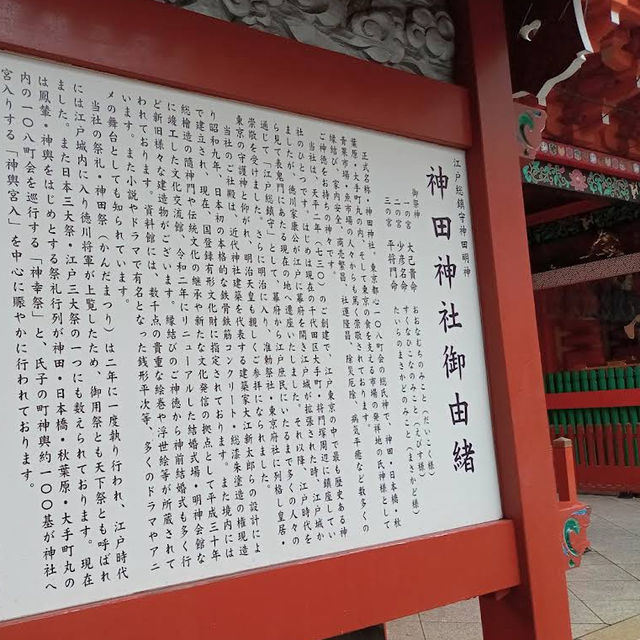 江戸総鎮守神田明神
神田神社御由緒
御祭神
一の宮 大己貴命 おおなむちのみこと(だいこく様)
二の宮 少彦名命 すくなひこなのみこと(えびす様)
三の宮 平将門命 たいらのまさかどのみこと(まさかど様)
正式名称・神田神社。東京都心一〇八町会の総氏神で、神田・日本橋・秋
葉原・大手町丸の内、そして東京の食を支える市場の発祥地の氏神様として
青果市場・魚市場の人々からも篤く崇敬されております。
縁結び、家内安全、商売繁昌、社運隆昌、除災厄除、病気平癒など数多くの
ご神徳をお持ちの神々です。
当社は、天平二年(七三〇)のご創建で、江戸東京の中で最も歴史ある神
社のひとつです。はじめは現在の千代田区大手町・将門塚周辺に鎮座してい
ましたが、徳川家康公が江戸に幕府を開き江戸城が拡張された時、江戸城か
ら見て表鬼門にあたる現在の地へ遷座いたしました。それ以降、江戸時代を
通じて「江戸総鎮守」として、幕府から江戸庶民にいたるまで多くの人々の
崇敬を受けました。さらに明治に入り、准勅祭社・東京府社に列格し皇居・
東京の守護神と仰がれ、明治天皇も親しくご参拝になられました。
当社のご社殿は、近代神社建築を代表する建築家大江新太郎らの設計によ
り昭和九年、日本初の本格的な鉄骨鉄筋コンクリート・総漆朱塗造の権現造
で建立され、現在、国登録有形文化財に指定されております。また境内には
総檜造の隨神門や伝統文化の継承や新たな文化発信の拠点として平成三十年
に竣工した文化交流館、令和二年にリニューアルした結婚式場・明神会館な
ど新旧様々な建造物がございます。縁結びのご神徳から神前結婚式も多く行
われております。資料館には、数千点の貴重な絵巻や浮世絵等が所蔵されて
います。また小説やドラマで有名となった銭形平次等、多くのドラマやアニ
メの舞台としても知られています。
当社の祭礼・神田祭(かんだまつり)は二年に一度執り行われ、江戸時代
には江戸城内に入り徳川将軍が上覧したため、御用祭とも天下祭とも呼ばれ
ました。また日本三大祭・江戸三大祭の一つにも数えられております。現在
は鳳輦・神輿をはじめとする祭礼行列が神田・日本橋・秋葉原・大手町丸の
内の一〇八町会を巡行する「神幸祭」と、氏子の町神輿約一〇〇基が神社へ
宮入りする「神輿宮入」を中心に賑やかに行われております。